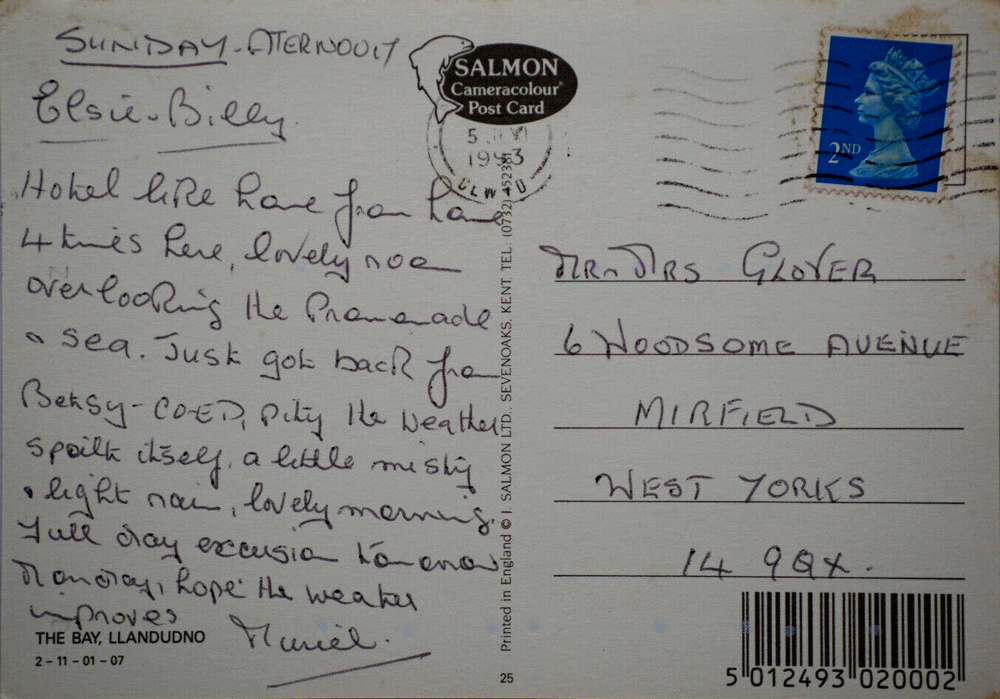 SUNDAY-ATERNOON
Elsie-Billy.
Hotel like home from home
4 times here, lovely room
overlooking the Promenade
& Sea. Just got back from
Betsy-COED, pity the weather
spoilt itself, a little misty
& light rain, lovely morning.
Full day excusion tomorrow
Monday, hope the weather
improves
Muriel.
THE BAY, LLANDUDNO
2-11-01-07
SALMON
Cameracolour
Post Card
5
1993
CLWYD
Printed in England © J. SALMON LTD., SEVENOAKS, KENT TEL: (0732) 452381
25
2ND
MR & MRS GLOVER
6 WOODSOME AVENUE
MIRFIELD
WEST YORKS
14 9QX.
5 012493 020002